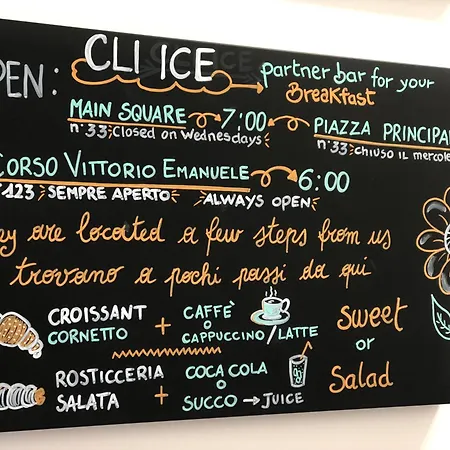 PEN: CLI ICE partner bar for your
Breakfast
MAIN SQUARE 7:00 PIAZZA PRINCIPAL
n°33 Closed on Wednesdays n°33 CHIUSO IL MERCOLE
CORSO VITTORIO EMANUELE 6:00
°123 SEMPRE APERTO ALWAYS OPEN
ey are located a few steps from us
trovano a pochi passi da qui
CROISSANT + CAFFÈ Sweet
CORNETTO O
CAPPUCCINO/LATTE or
ROSTICCERIA COCA COLA Salad
SALATA + O
SUCCO → JUICE